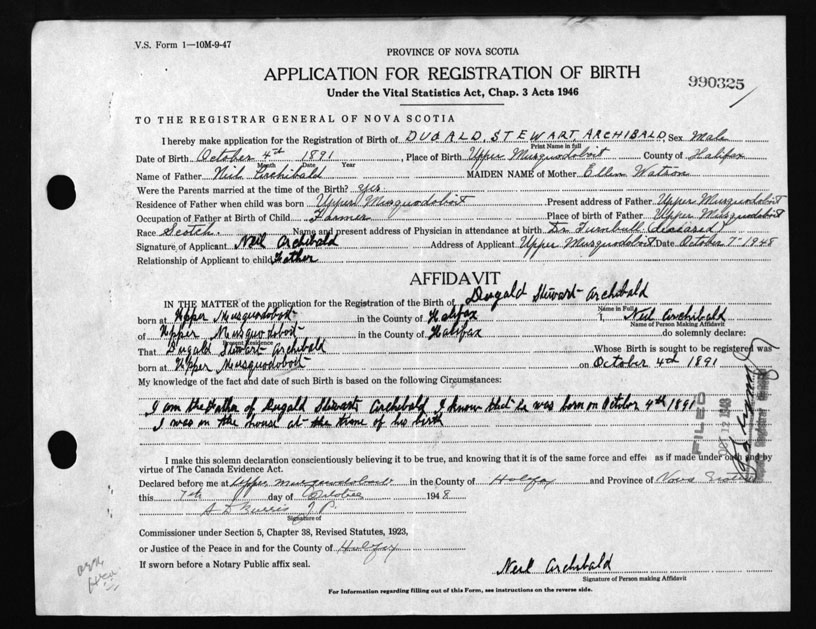 V.S. Form 1—10M-9-47
PROVINCE OF NOVA SCOTIA
APPLICATION FOR REGISTRATION OF BIRTH
990325
Under the Vital Statistics Act, Chap. 3 Acts 1946
TO THE REGISTRAR GENERAL OF NOVA SCOTIA
I hereby make application for the Registration of Birth of DUGALD STEWART ARCHIBALD Sex Male
Print Name in full
Date of Birth October 4th 1891, Place of Birth Upper Musquodoboit County of Halifax
Month Date Year
Name of Father Neil Archibald MAIDEN NAME of Mother Ellen Watson
Were the Parents married at the time of the Birth? yes
Residence of Father when child was born Upper Musquodoboit Present address of Father Upper Musquodoboit
Occupation of Father at Birth of Child Farmer Place of birth of Father Upper Musquodoboit
Race Scotch. Name and present address of Physician in attendance at birth Dr Turnbull (deceased)
Signature of Applicant Neil Archibald Address of Applicant Upper Musquodoboit Date October 7 - 1948
Relationship of Applicant to child Father
AFFIDAVIT
IN THE MATTER of the application for the Registration of the Birth of Dugald Stewart Archibald
Name in Full
born at Upper Musquodoboit in the County of Halifax I, Neil Archibald
Name of Person Making Affidavit
of Upper Musquodoboit in the County of Halifax do solemnly declare:
Present Residence
That Dugald Stewart Archibald Whose Birth is sought to be registered was
born at Upper Musquodoboit on October 4th 1891
My knowledge of the fact and date of such Birth is based on the following Circumstances:
I am the Father of Dugald Stewart Archibald I know that he was born on October 4th 1891
I was in the house at the time of his birth
FILED
OCT 12 1948
I make this solemn declaration conscientiously believing it to be true, and knowing that it is of the same force and effe as if made under oath and by
virtue of The Canada Evidence Act.
Declared before me at Upper Musquodoboit in the County of Halifax and Province of Nova Scotia
this 7th day of October 1948
J.P.
Signature of
Commissioner under Section 5, Chapter 38, Revised Statutes, 1923,
or Justice of the Peace in and for the County of Halifax
If sworn before a Notary Public affix seal.
Neil Archibald
Signature of Person making Affidavit
For Information regarding filling out of this Form, see instructions on the reverse side.